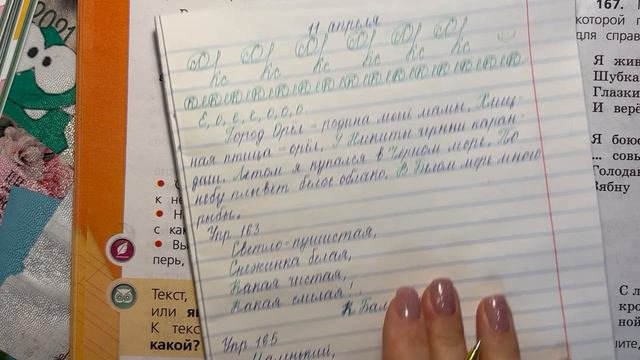 2021
11 апреля
Ор Ор Ор Ор Ор Ор
кс кс кс кс кс
Е, о, е, е, о, о, о.
Город Орёл - родина моей мамы. Хищ-
ная птица - орёл. У Никиты чёрный каран-
даш. Летом я купался в Чёрном море. По
небу плывёт белое облако. В Белом море много
рыбы.
Упр 163.
Светло-пушистая,
Снежинка белая,
Какая чистая,
Какая смелая!
К. Бал
Упр 165
167.
которой п
для спра
Я жив
Шубка
Глазки
И верё
Я боюс
... совы
Голодан
Вябну
к не
Н
с как
Вы
перь,
Текст,
или яв
К текс
какой?
С л
кро
ной